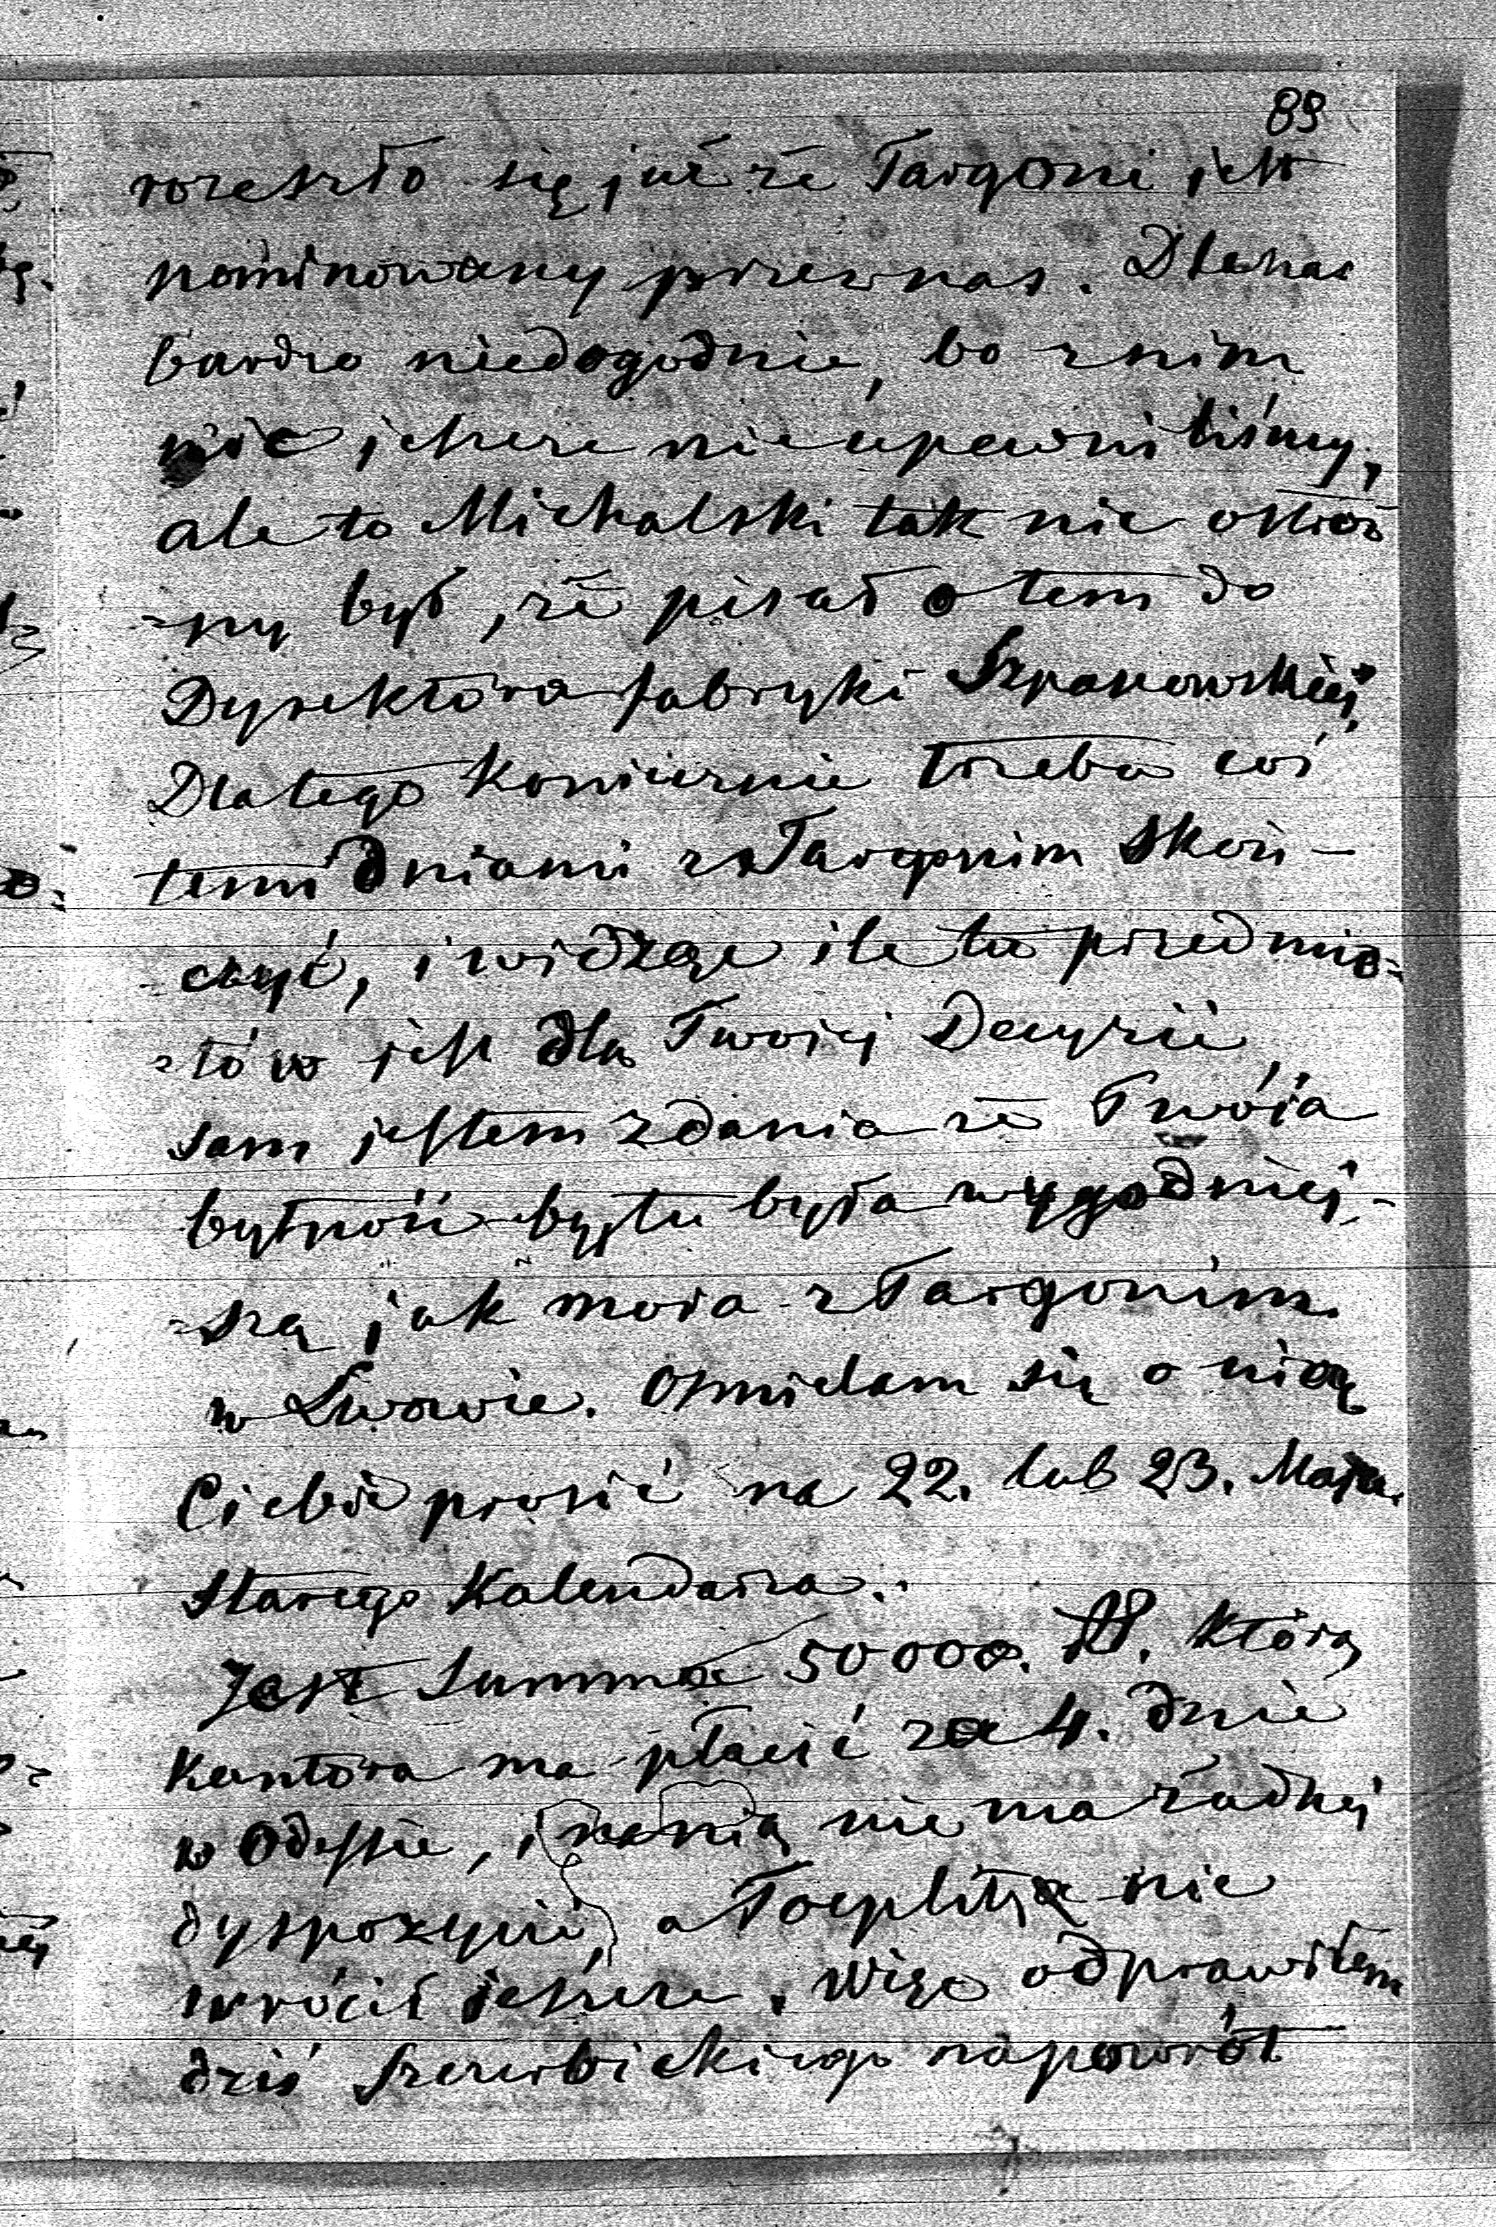 89
rozeszło się już że Targoni jest
nominowany przez nas. Dla nas
bardzo niedogodnie, bo z nim
nic jeszcze nie upewniliśmy,
ale to Michalski tak nie ostroż
=ny był, że pisał o tem do
Dyrektora fabryki Szpanowskiej,
Dlatego koniecznie trzeba coś
temi dniami z Targonim skoń-
czyć, i widząc ile tu przedmio=
=tów jest dla Twojej Decyzii,
sam jestem zdania że Twója
bytność by tu była wygodniej-
=szą jak moia z Targonim
w Lwowie. Ośmielam się o nią
Ciebie prosić na 22. lub 23. Maja.
Starego Kalendarza.
Jest Summa 50000. którą
Kantora ma płacić za 4. dnie
w Odessie, i na nią nie ma żadnej
dyspozycii, a Toeplitz nie
wrócił jeszcze. Więc odprawiłem
dziś Szczerbickiego napowrót